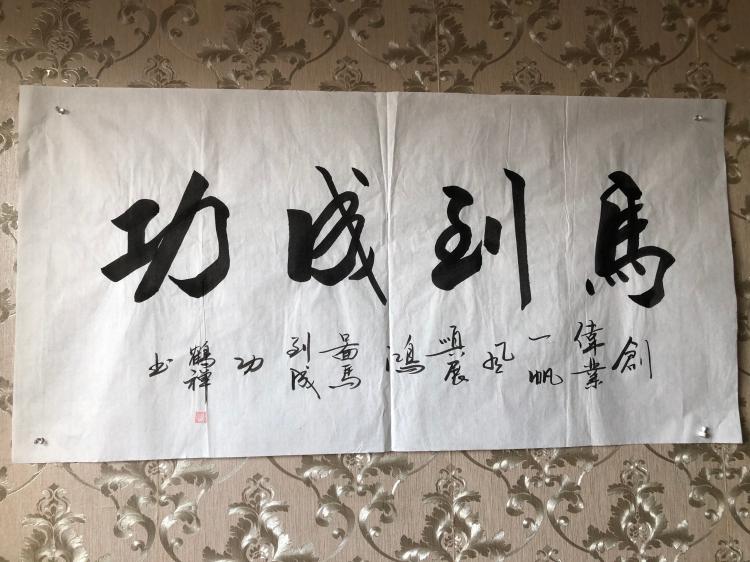 馬到成功
創偉業一帆風順展鴻圖馬到成功
鶴禪书